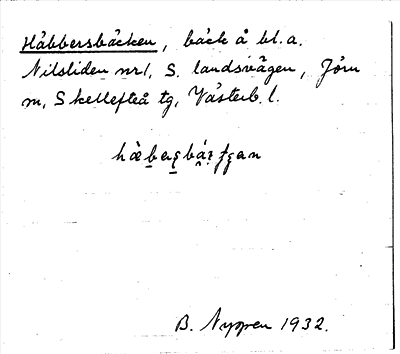 Håbbersbäcken, bäck å bl.a.
Nilsliden nr 1, S. landsvägen, Jörn
sn, Skellefteå tg, Västerb. l.
B. Nyppen 1932.